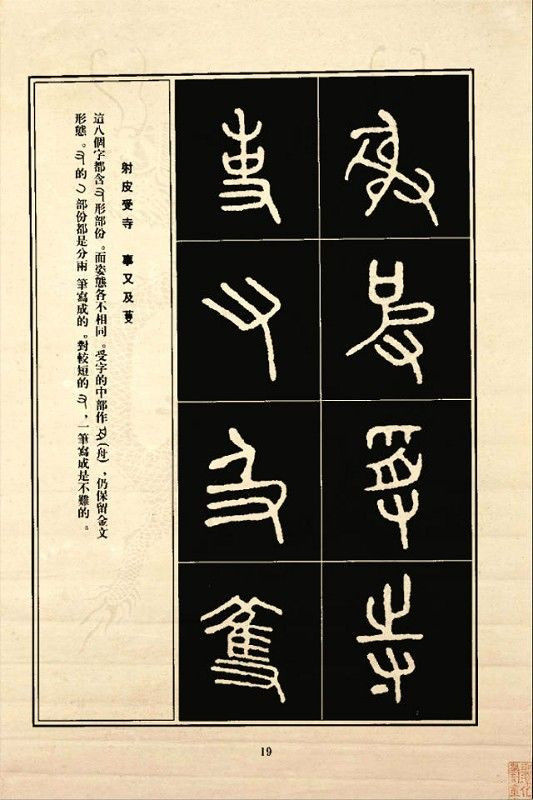 射皮受寺
事又及蒦
射皮受寺 事又及蒦
這八個字都含形部份。而姿態各不相同。受字的中部作(舟),仍保留金文
形態。的部份都是分兩筆寫成的。對較短的,一筆寫成是不難的。
19